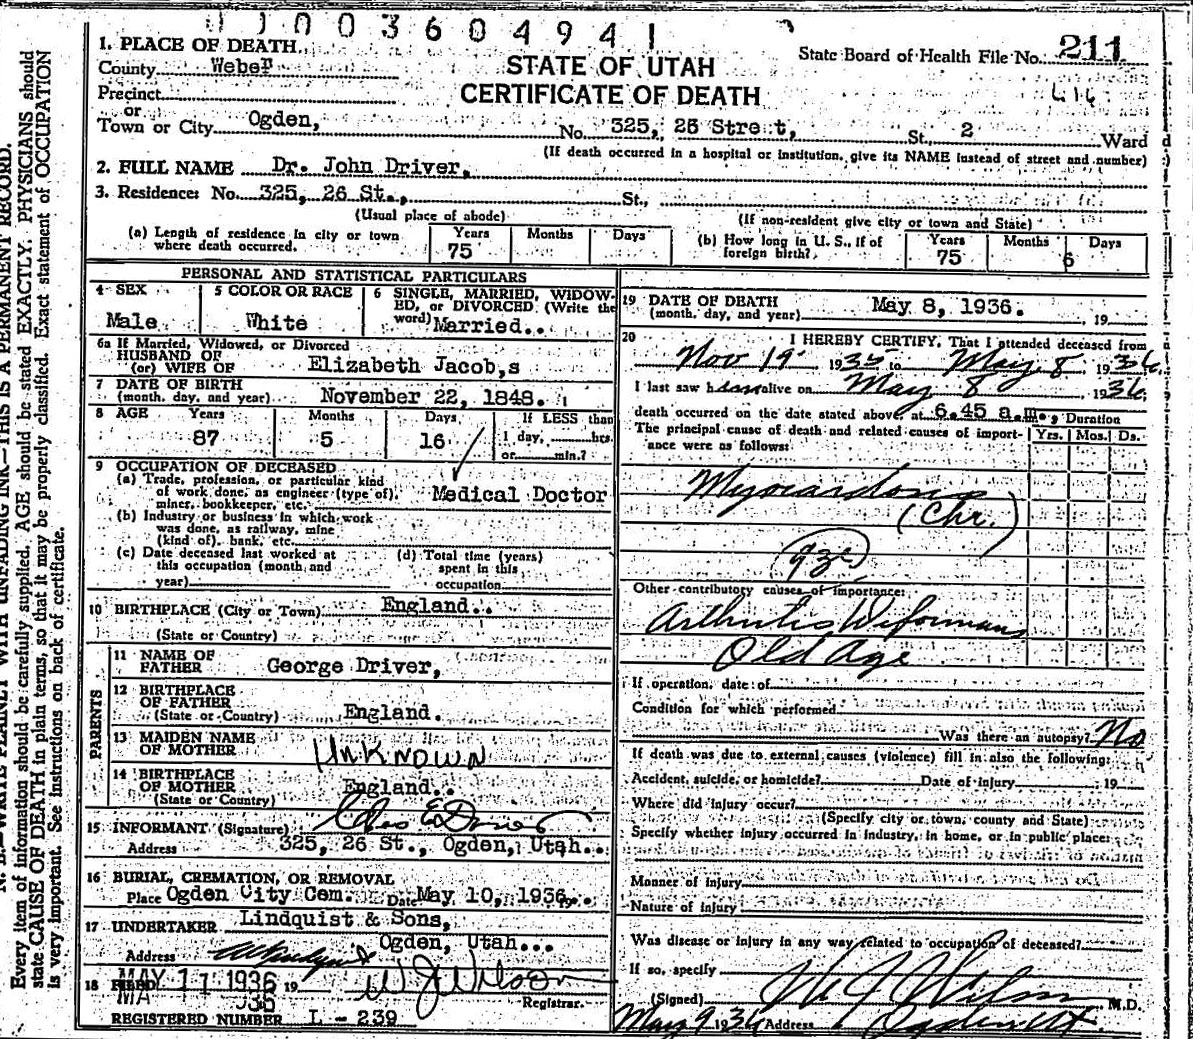 01003604941
1. PLACE OF DEATH
STATE OF UTAH
CERTIFICATE OF DEATH
State Board of Health File No. 211
County Weber
Precinct
or
Town or City Ogden, No. 325, 26 Street, St., 2 Ward
(If death occurred in a hospital or institution, give its NAME instead of street and number)
2. FULL NAME Dr. John Driver,
3. Residence: No. 325, 26 St., St.,
(Usual place of abode) (If non-resident give city or town and State)
(a) Length of residence in city or town where death occurred. Years 75 Months Days
(b) How long in U. S., if of foreign birth? Years 75 Months Days 6
PERSONAL AND STATISTICAL PARTICULARS
4 SEX Male
5 COLOR OR RACE White
6 SINGLE, MARRIED, WIDOWED, or DIVORCED (Write the word) Married..
6a If Married, Widowed, or Divorced
HUSBAND OF
(or) WIFE OF Elizabeth Jacob,s
7 DATE OF BIRTH
(month, day, and year) November 22, 1848.
8 AGE Years 87 Months 5 Days 16 If LESS than 1 day, hrs. or min.?
9 OCCUPATION OF DECEASED
(a) Trade, profession, or particular kind of work done, as engineer (type of), miner, bookkeeper, etc. Medical Doctor
(b) Industry or business in which work was done, as railway, mine (kind of), bank, etc.
(c) Date deceased last worked at this occupation (month and year)
(d) Total time (years) spent in this occupation
10 BIRTHPLACE (City or Town) England..
(State or Country)
PARENTS
11 NAME OF FATHER George Driver,
12 BIRTHPLACE OF FATHER
(State or Country) England.
13 MAIDEN NAME OF MOTHER Unknown
14 BIRTHPLACE OF MOTHER
(State or Country) England..
15 INFORMANT (Signature)
Address 325, 26 St., Ogden, Utah..
16 BURIAL, CREMATION, OR REMOVAL
Place Ogden City Cem. Date May 10, 1936..
17 UNDERTAKER Lindquist & Sons,
Address Ogden, Utah...
18 FILED MAY 11 1936 19 W J Wilson
Registrar.
REGISTERED NUMBER L - 239
19 DATE OF DEATH
(month, day, and year) May 8, 1936. , 19
20 I HEREBY CERTIFY, That I attended deceased from
Nov 19 1935 to May 8, 1936.
I last saw him alive on May 8 1936,
death occurred on the date stated above, at 6.45 a.m., Duration
The principal cause of death and related causes of importance were as follows: Yrs. Mos. Ds.
(Chr.)
Other contributory causes of importance:
Arthritis Deformans
Old Age
If operation, date of
Condition for which performed
Was there an autopsy? No
If death was due to external causes (violence) fill in also the following:
Accident, suicide, or homicide? Date of injury , 19
Where did injury occur?
(Specify city or town, county and State)
Specify whether injury occurred in industry, in home, or in public place:
Manner of injury
Nature of injury
Was disease or injury in any way related to occupation of deceased?
If so, specify
(Signed) W J Wilson M.D.
May 9 1936 Address Ogden Ut
WRITE PLAINLY WITH UNFADING INK—THIS IS A PERMANENT RECORD.
Every item of information should be carefully supplied. AGE should be stated EXACTLY. PHYSICIANS should
state CAUSE OF DEATH in plain terms, so that it may be properly classified. Exact statement of OCCUPATION
is very important. See instructions on back of certificate.